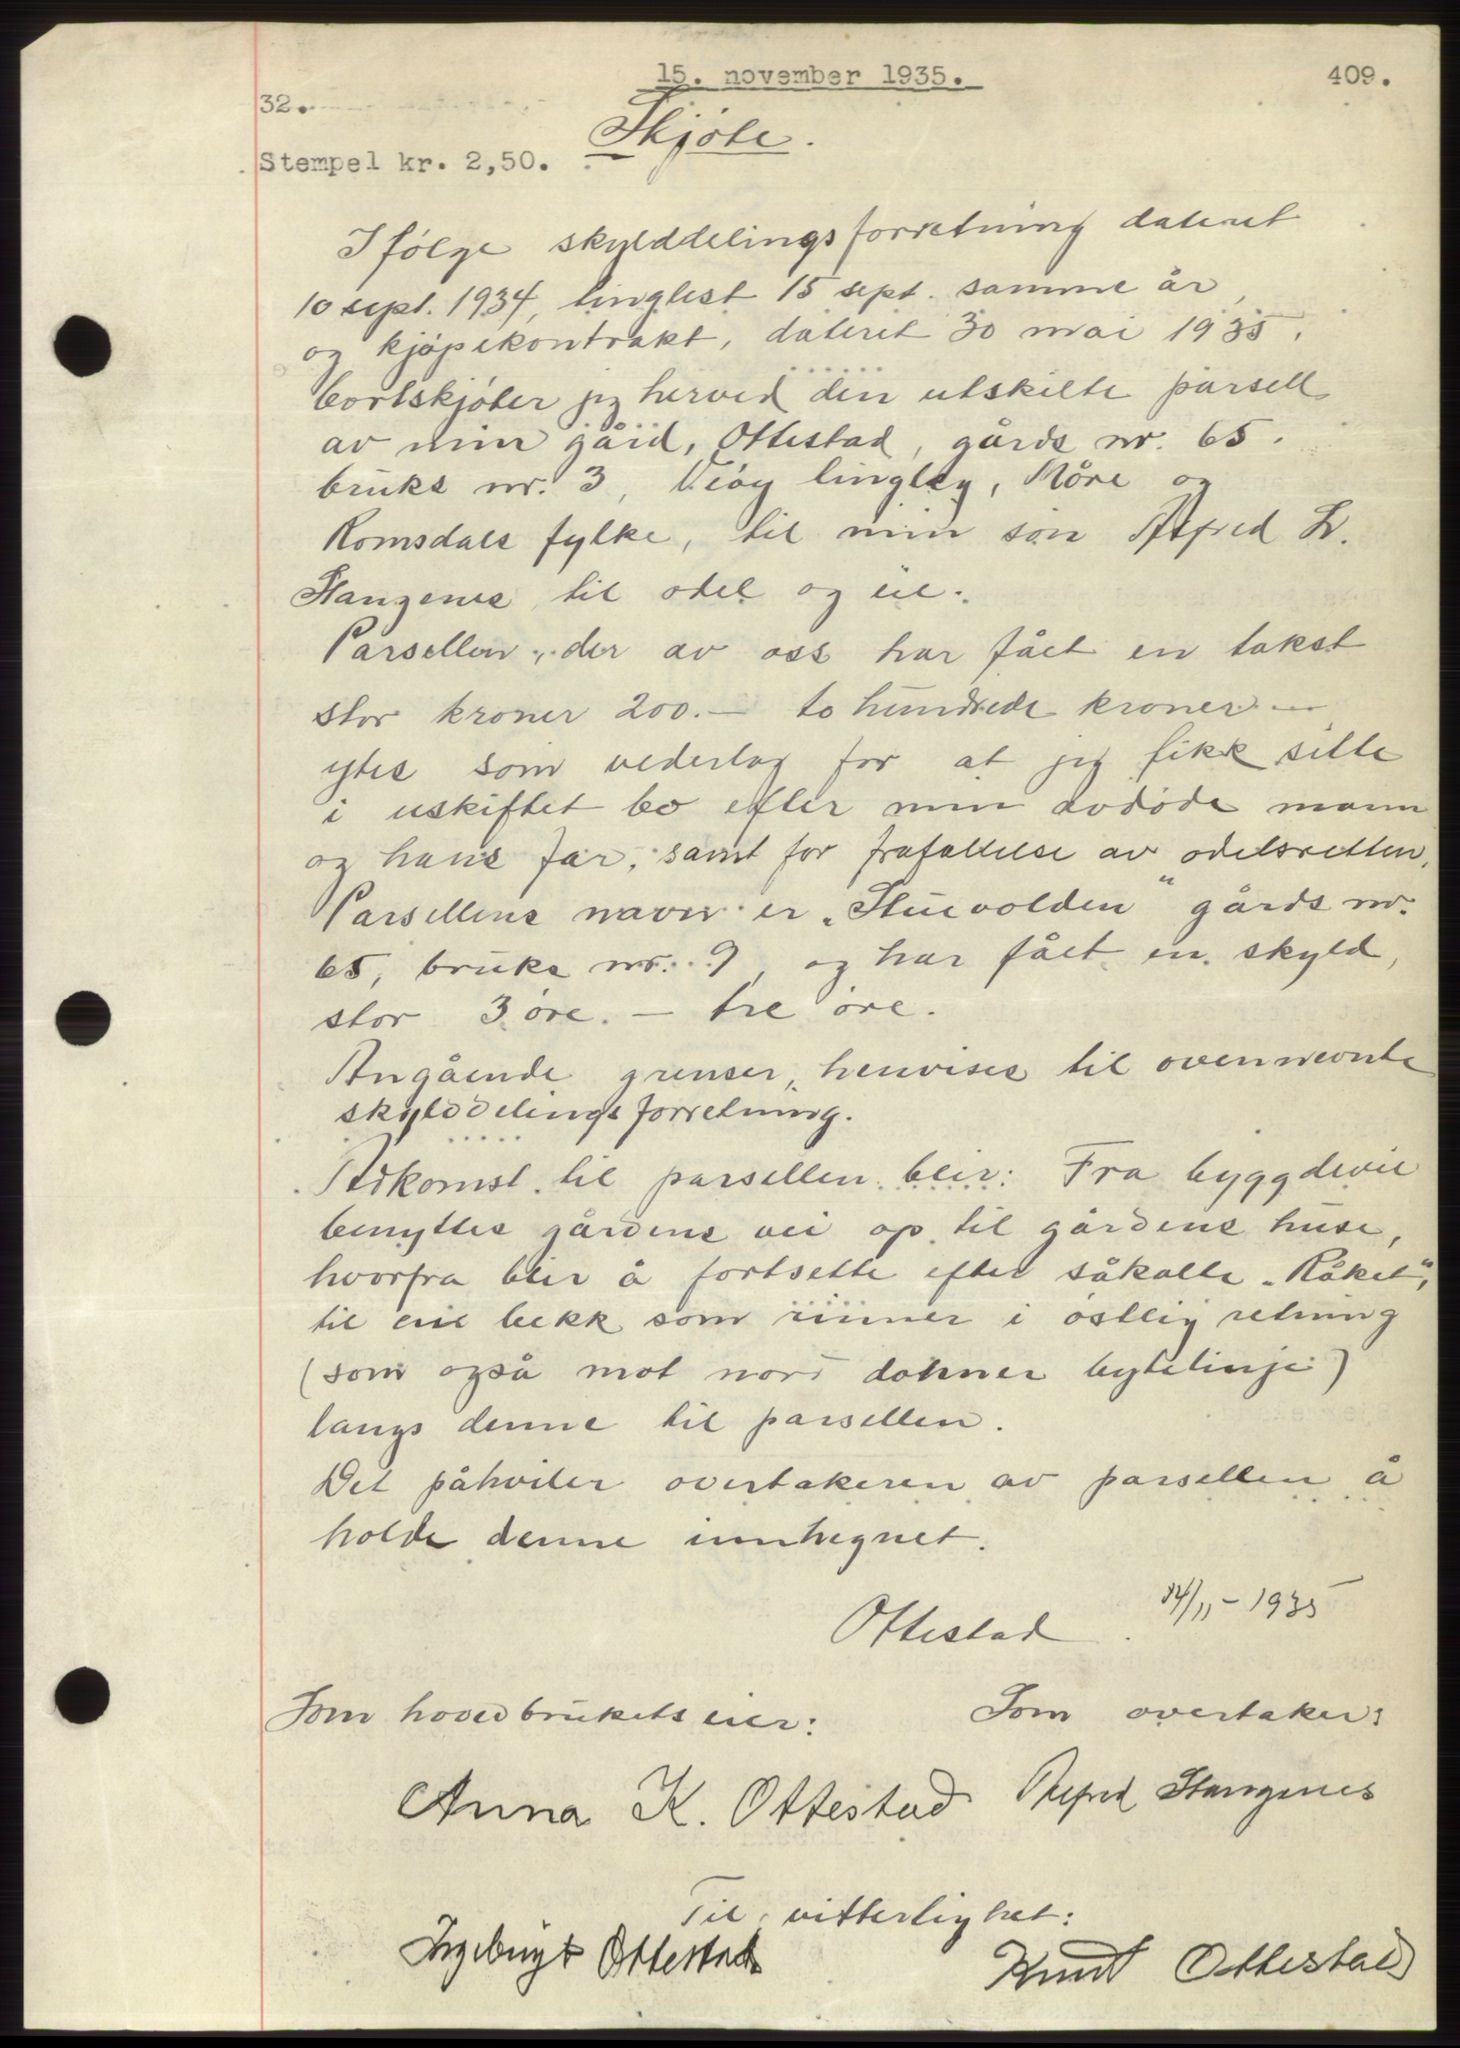 15. november 1935.
409.
32.
Skjøte.
Stempel kr. 2,50.
Ifølge skylddelingsforretning dateret
10 sept. 1934, tinglest 15 sept. samme år,
og kjøpekontrakt, dateret 30 mai 1935,
bortskjøter jeg herved den utskilte parsell
av min gård, Ottestad, gårds nr. 65.
bruks nr. 3, Veøy tinglag, Møre og
Romsdals fylke, til min søn Alfred L.
Stangenes til odel og eie.
Parsellen, der av oss har fået en takst
stor kroner 200.— to hundrede kroner —
ytes som vederlag for at jeg fikk sitte
i uskiftet bo efter min avdøde mann
og hans far, samt for frafallelse av odelsretten.
Parsellens navn er „Stuevolden" gårds nr.
65, bruks nr. 9, og har fått en skyld,
stor 3 øre. — tre øre.
Angående grenser, henvises til ovennevnte
skylddelingsforretning.
Adkomst til parsellen blir: Fra byggdevei
benyttes gårdens vei op til gårdens huse,
hvorfra blir å fortsette efter såkalte „Råket",
til en bekk som rinner i østlig retning
(som også mot nord danner bytelinje)
langs denne til parsellen.
Det påhviler overtakeren av parsellen å
holde denne innhegnet.
Ottestad 14/11 - 1935
Som hovedbrukets eier: Som overtaker:
Anna K. Ottestad Alfred Stangenes
Til vitterlighet:
Ingebrigt Ottestad Knut Ottestad